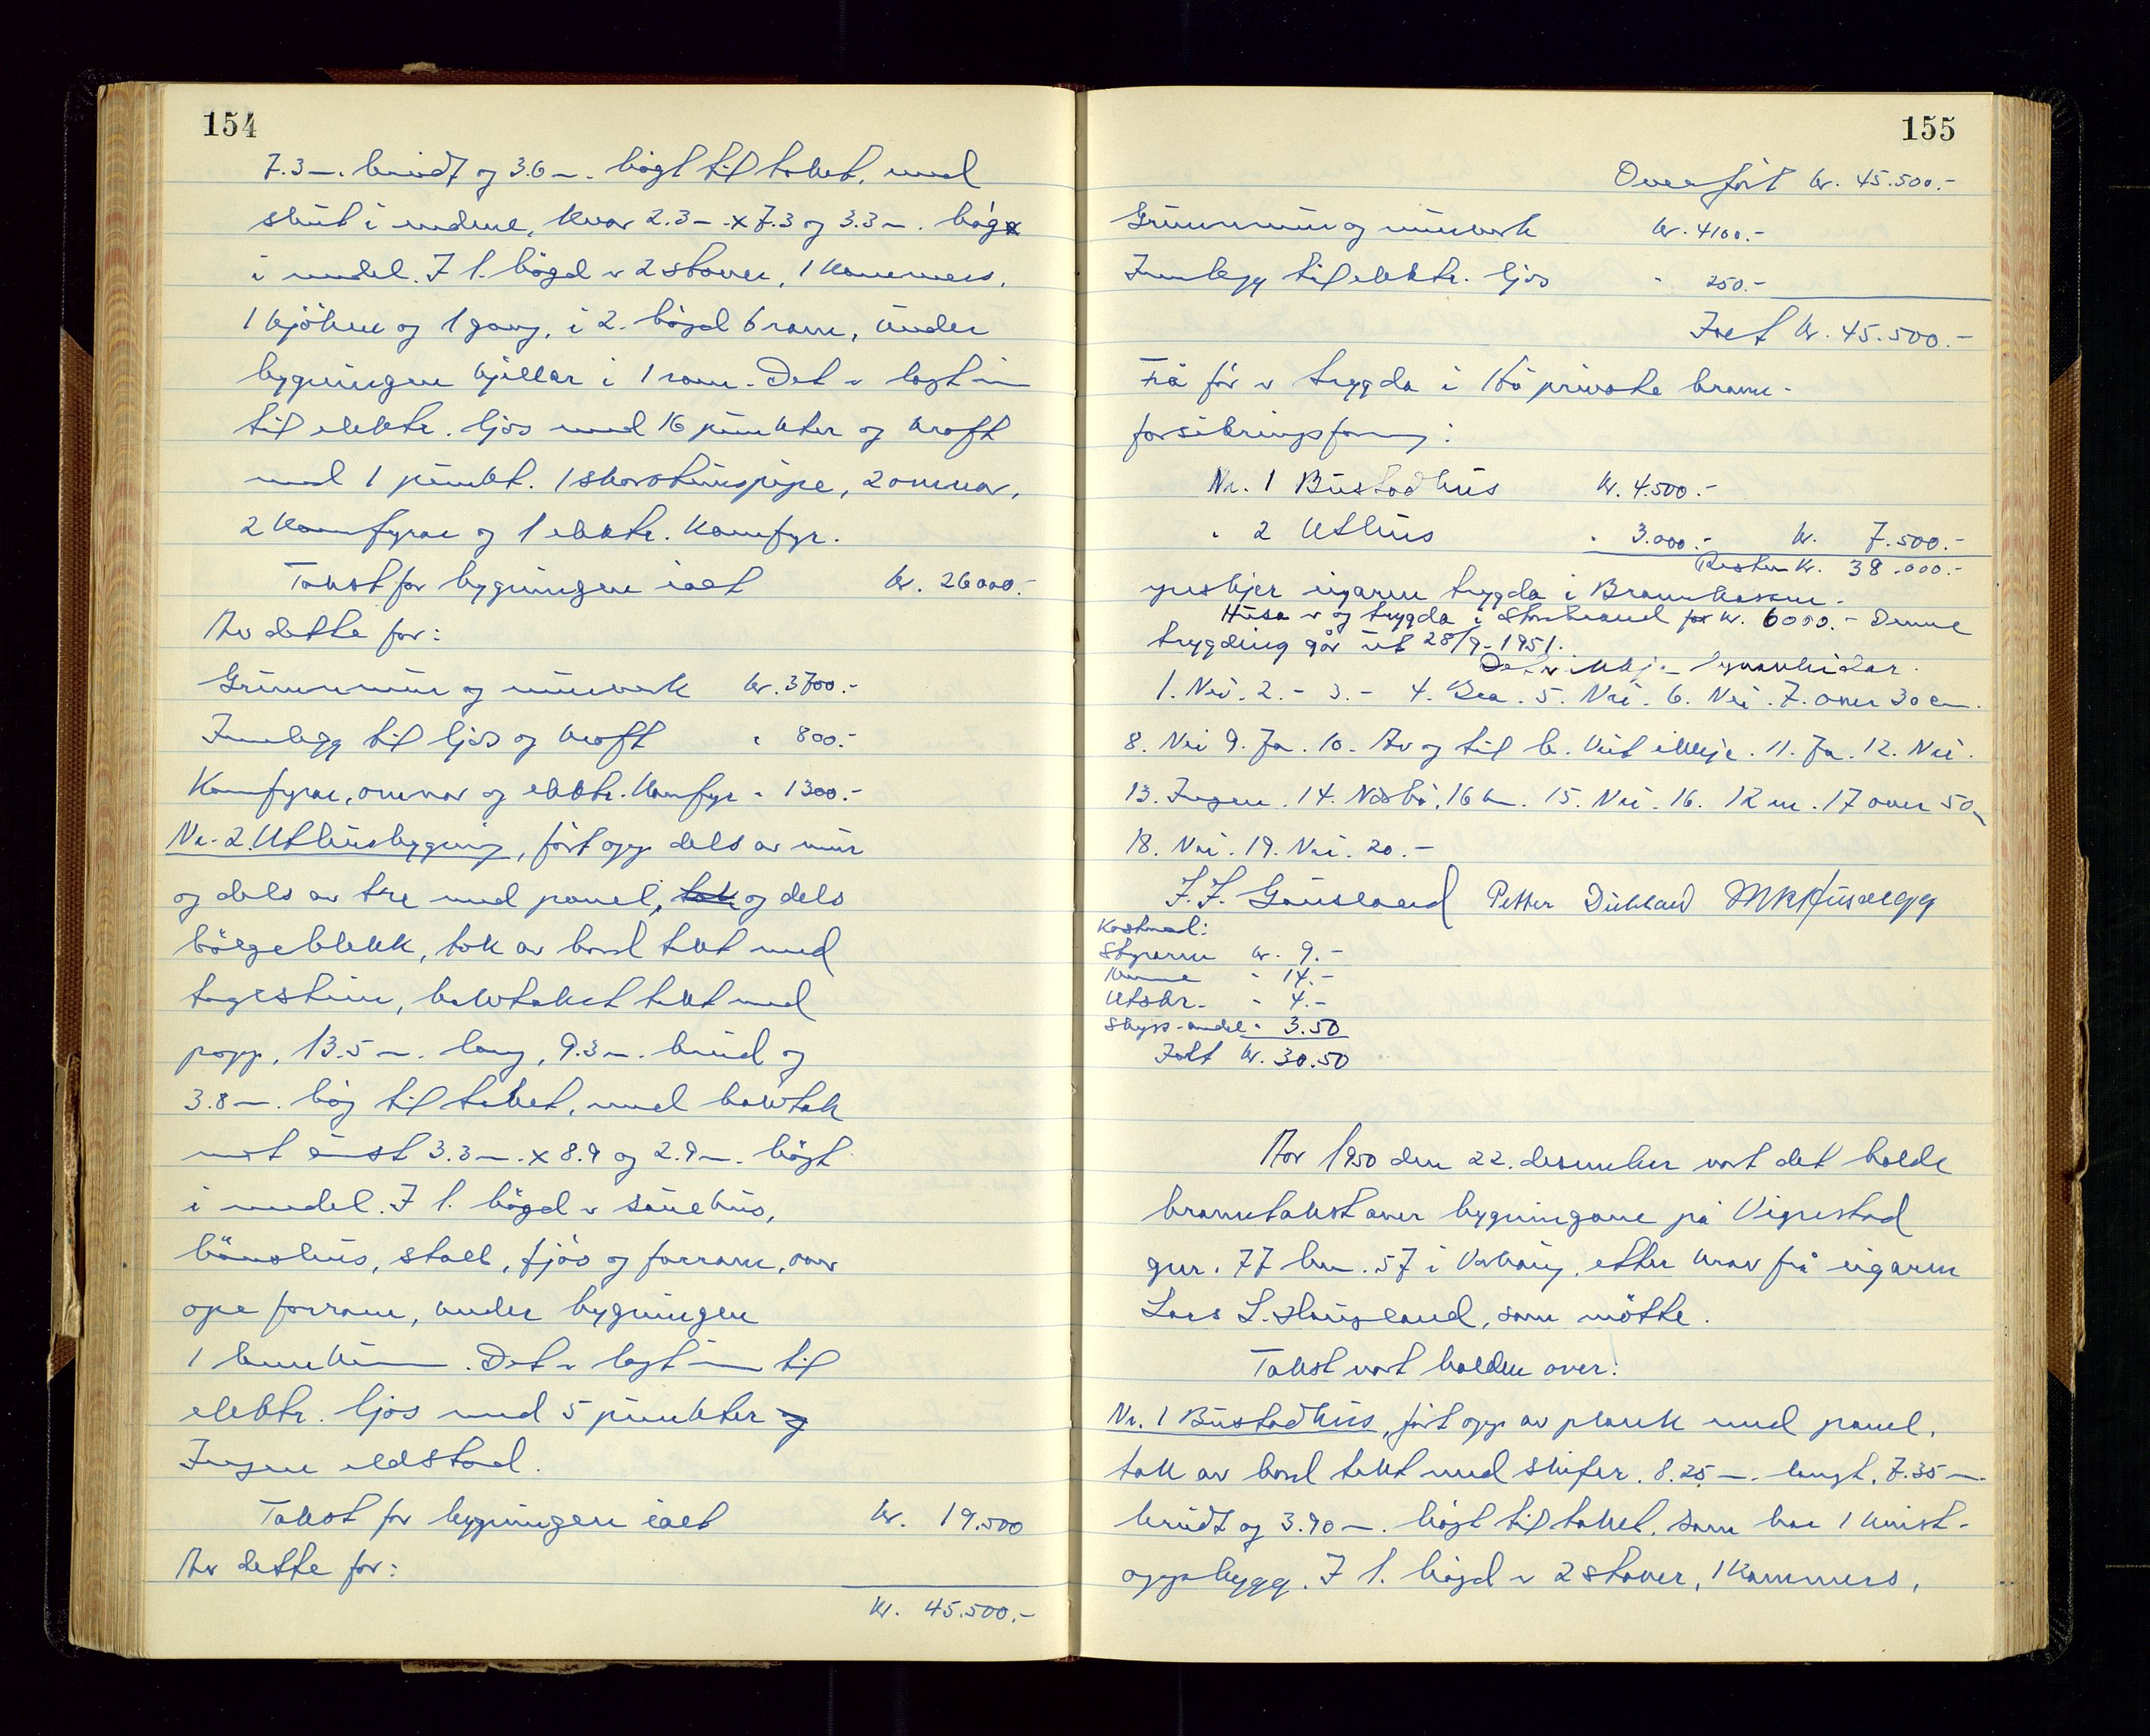 154
7.3 m. breidt og 3.6 m. högt til taket, med
skut i endene, kvar 2.3 m. x 7.3 og 3.3 m. hög
i medel. I 1. högd er 2 stover, 1 kammers,
1 kjöken og 1 gang, i 2. högd 6 rom, under
bygningen kjellar i 1 rom. Det er lagt inn
til elektr. ljos med 16 punkter og kraft
med 1 punkt. 1 skorsteinspipe, 2 omnar,
2 komfyrar og 1 elektr. komfyr.
Takst for bygningen ialt kr. 26000.-
Av dette for:
Grunnmur og murverk kr. 3700.-
Innlegg til ljos og kraft " 800.-
Komfyrar, omnar og elektr. komfyr " 1300.-
Nr. 2. Uthusbygning, fört opp dels av mur
og dels av tre med panel, tak og dels
bölgeblekk, tak av bord tekt med
teglstein, halvtaket tekt med
papp, 13.5 m. lang, 9.3 m. breid og
3.8 m. hög til taket, med halvtak
mot aust 3.3 m. x 8.9 og 2.9 m. högt
i medel. I 1. högd er sauehus,
hönsehus, stall, fjös og forrom, over
ope forrom, under bygningen
1 land­kum. Det er lagt inn til
elektr. ljos med 5 punkter og
Ingen eldstad.
Takst for bygningen ialt kr. 19.500
Av dette for:
kr. 45.500.-
155
Overfört kr. 45.500.-
Grunnmur og murverk kr. 4100.-
Innlegg til elektr. ljos " 250.-
Ialt kr. 45.500.-
Frå för er trygda i Hå private brann-
forsikringsforening:
Nr. 1 Bustadhus kr. 4.500.-
" 2 Uthus " 3.000.- kr. 7.500.-
Resten kr. 38.000.-
ynskjer eigaren trygda i Brannkassen.
Husa er og trygda i Storebrand for kr. 6000.- Denne
trygding går ut 28/9-1951.
Det er ikkje lynavleidar.
1. Nei. 2. - 3. - 4. Bra. 5. Nei. 6. Nei. 7. over 30 cm.
8. Nei 9. Ja. 10. Av og til br. Veit ikkje. 11. Ja. 12. Nei.
13. Ingen. 14. Næsbö, 16 m. 15. Nei. 16. 12 m. 17 over 50 m
18. Nei. 19. Nei. 20. -
J. J. Gausland Petter Dubland M K Husvegg
Kostnad:
Styraren kr. 9.-
Menne " 14.-
Utskr. " 4.-
Skyss-andel " 3.50
Ialt kr. 30.50
Aar 1950 den 22. desember vart det halde
branntakst over bygningane på Vigrestad
gnr. 77 bnr. 57 i Varhaug, etter krav frå eigaren
Lars L. Haugland, som mötte.
Takst vart halden over:
Nr. 1 Bustadhus, fört opp av plank med panel,
tak av bord tekt med skifer. 8.25 m. langt, 7.35 m.
breidt og 3.90 m. högt til taket, som har 1 kvist-
oppbygg. I 1. högd er 2 stover, 1 kammers,